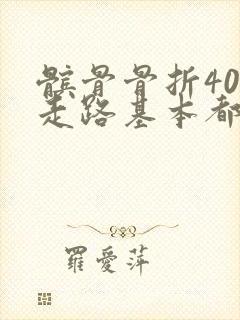 髌骨骨折40
走路基本都
羅愛萍